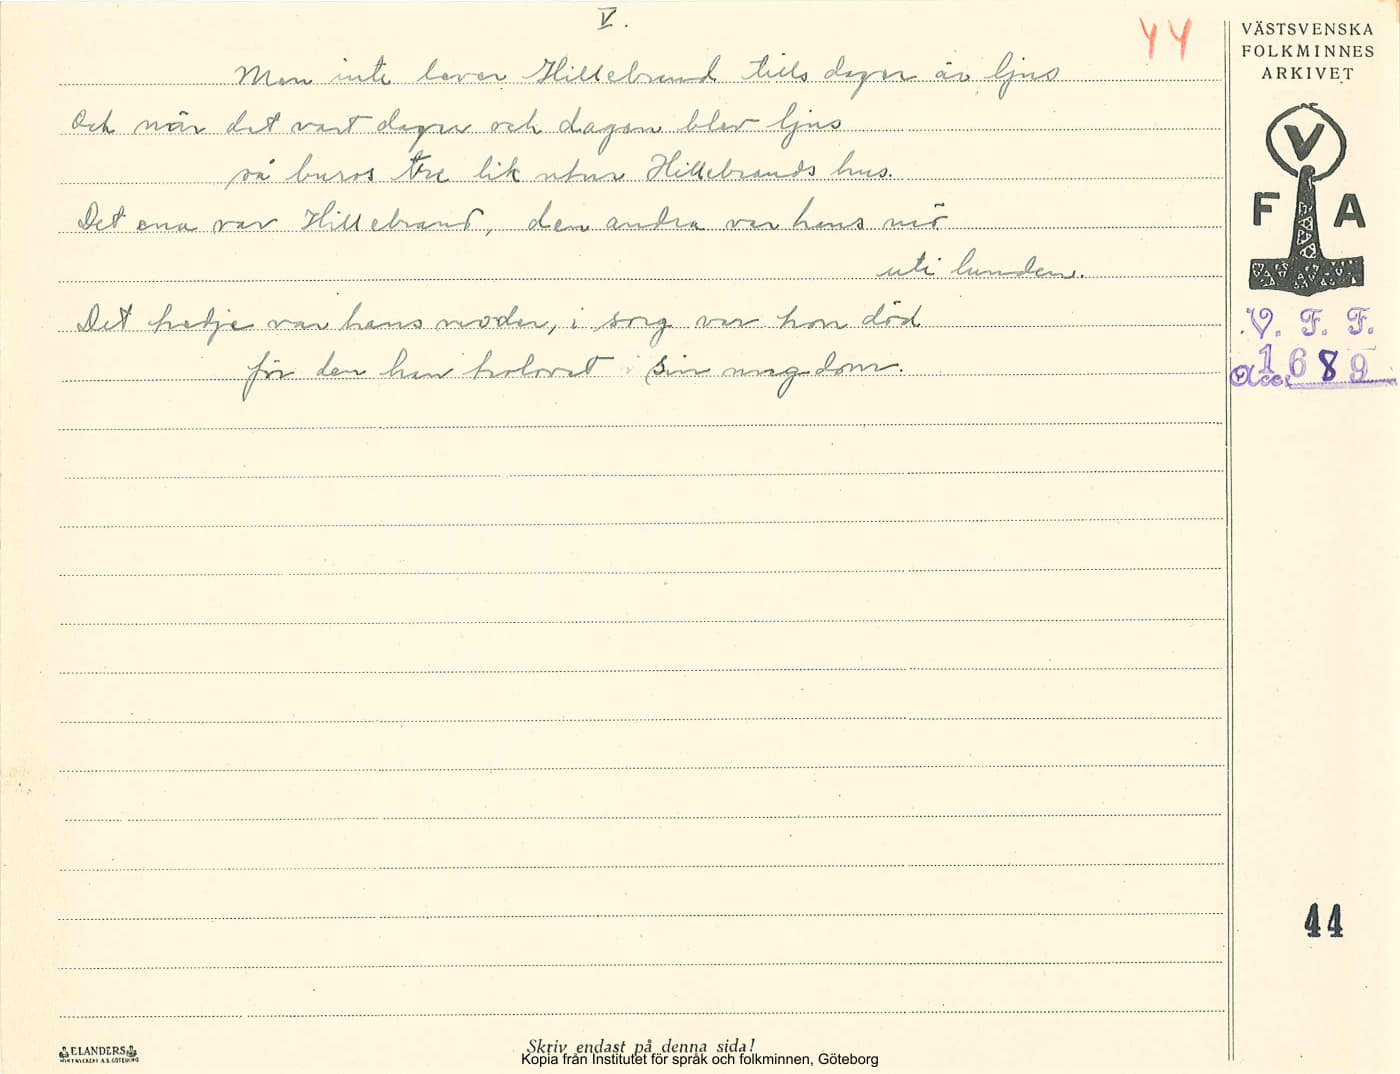 V.
44
Men inte lever Hillebrand tills dagen är ljus
Och när det vart dager och dagen blev ljus
så buros tre lik utur Hillebrands hus.
Det ena var Hillebrand, den andra var hans mö
uti lunden.
Det tredje var hans moder, i sorg var hon död
för den han trolovat i sin ungdom.
VÄSTSVENSKA
FOLKMINNES
ARKIVET
V
F A
V. F. F.
Acc. 1689
44
ELANDERS
Skriv endast på denna sida!
Kopia från Institutet för språk och folkminnen, Göteborg